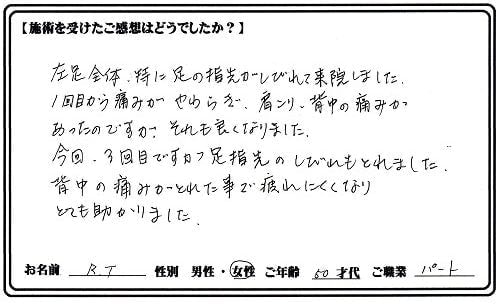 【施術を受けたご感想はどうでしたか？】
左足全体、特に足の指先がしびれて来院しました。
1回目から痛みがやわらぎ、肩こり、背中の痛みが
あったのですが、それも良くなりました。
今回、3回目ですが足指先のしびれもとれました。
背中の痛みがとれた事で疲れにくくなり
とても助かりました。
お名前 R.T 性別 男性・女性 ご年齢 50 才代 ご職業 パート